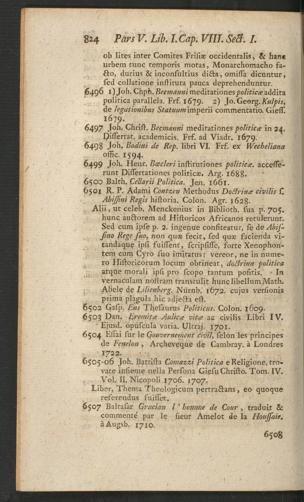 824 Pars V. Lib. I. Cap. VIII. Sect. I.
ob lites inter Comites Frisiæ occidentalis, & hanc
urbem tunc temporis motas, Monarchomacho fa-
cto, durius & inconsultius dicta, omissa dicuntur,
sed collatione instituta pauca deprehenduntur.
6496 1) Joh. Chph. Becmanni meditationes politicæ addita
politica parallela. Frf. 1679. 2) Jo. Georg. Kulpis,
de legationibus Statuum imperii commentatio. Giess.
1679.
6497 Joh. Christ. Becmanni meditationes politicæ in 24.
Dissertat. academicis. Frf. ad Viadr. 1679.
6498 Joh. Bodini de Rep. libri VI. Frf. ex Wecheliana
offic. 1594.
6499 Joh. Henr. Bœcleri institutiones politicæ. accesse-
runt Dissertationes politicæ. Arg. 1688.
6500 Balth. Cellarii Politica. Jen. 1661.
6501 R. P. Adami Contzen Methodus Doctrinæ civilis s.
Abissini Regis historia. Colon. Agr. 1628.
Alii, ut celeb. Menckenius in Biblioth. sua p. 705.
hunc auctorem ad Historicos Africanos retulerunt.
Sed cum ipse p. 2. ingenue confiteatur, se de Abis-
sino Rege suo, non quæ fecit, sed quæ facienda vi-
tandaque ipsi fuissent, scripsisse, forte Xenophon-
tem cum Cyro suo imitatus: vereor, ne in nume-
ro Historicorum locum obtineat, doctrina politica
atque morali ipsi pro scopo tantum positis. In
vernaculam nostram transtulit hunc libellum Math.
Abele de Lilienberg. Nürnb. 1672. cujus versionis
prima plagula hic adjecta est.
6502 Gasp. Ens Thesaurus Politicus. Colon. 1609.
6503 Dan. Eremitæ Aulicæ vitæ ac civilis Libri IV.
Ejusd. opuscula varia. Ultraj. 1701.
6504 Essai sur le Gouvernement civil, selon les principes
de Fenelon, Archeveque de Cambray. à Londres
1722.
6505-06 Joh. Battista Comazzi Politica e Religione, tro-
vate insieme nella Persona Giesu Christo. Tom. IV.
Vol. II. Nicopoli 1706. 1707.
Liber, Thema Theologicum pertractans, eo quoque
referendus fuisset.
6507 Baltasar Gracian l'homme de Cour, traduit &
commenté par le sieur Amelot de la Houssaie.
à Augsb. 1710.
6508